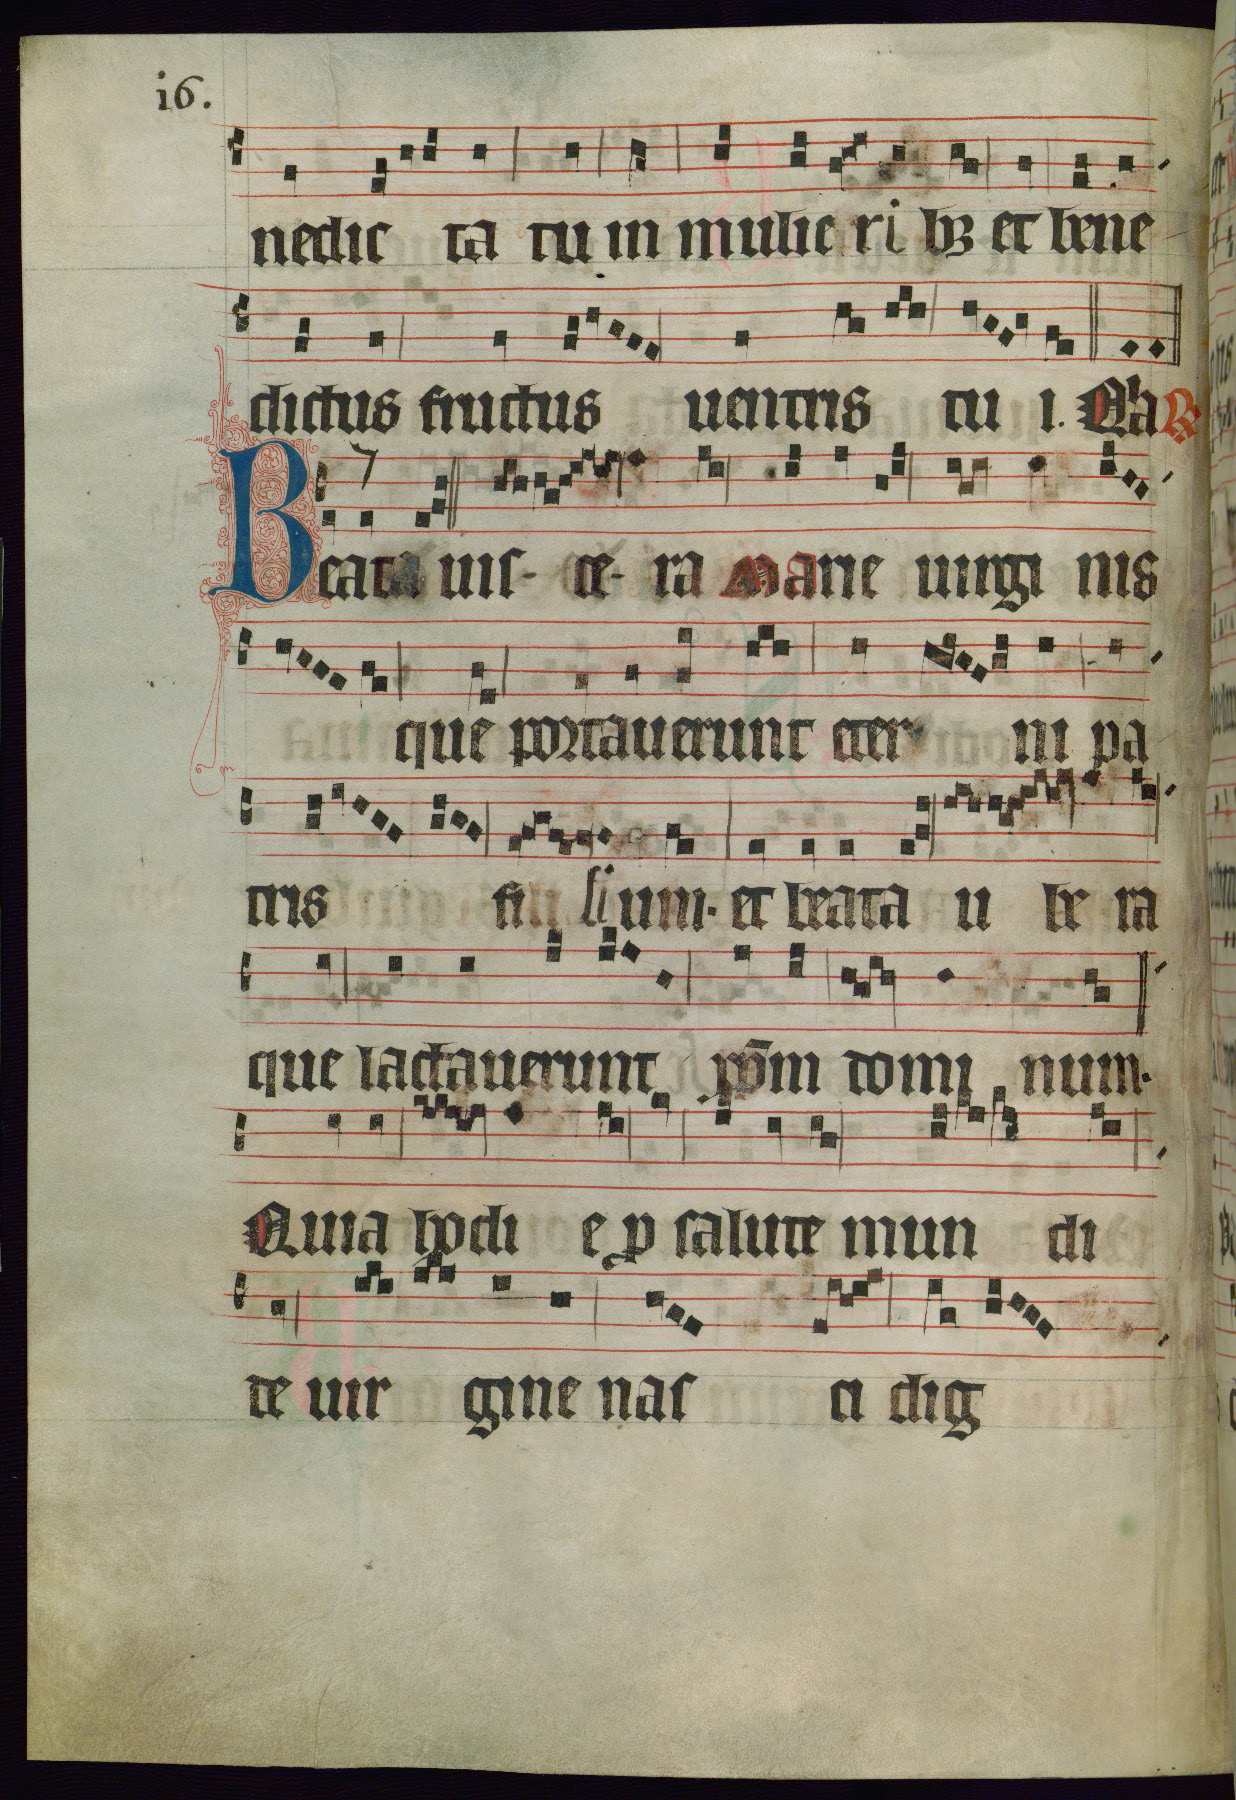 i6.
nedic ta tu in mulie ri bꝫ et bene
dictus fructus uentris tu i. Qa R
Beata uis- ce- ra Marie uirgi nis
que portauerunt eter ni pa
tris fi li um. et beata u be ra
que lactauerunt xp̄m domi num.
Quia hodi e ꝓ salute mun di
de uir gine nas ci dig